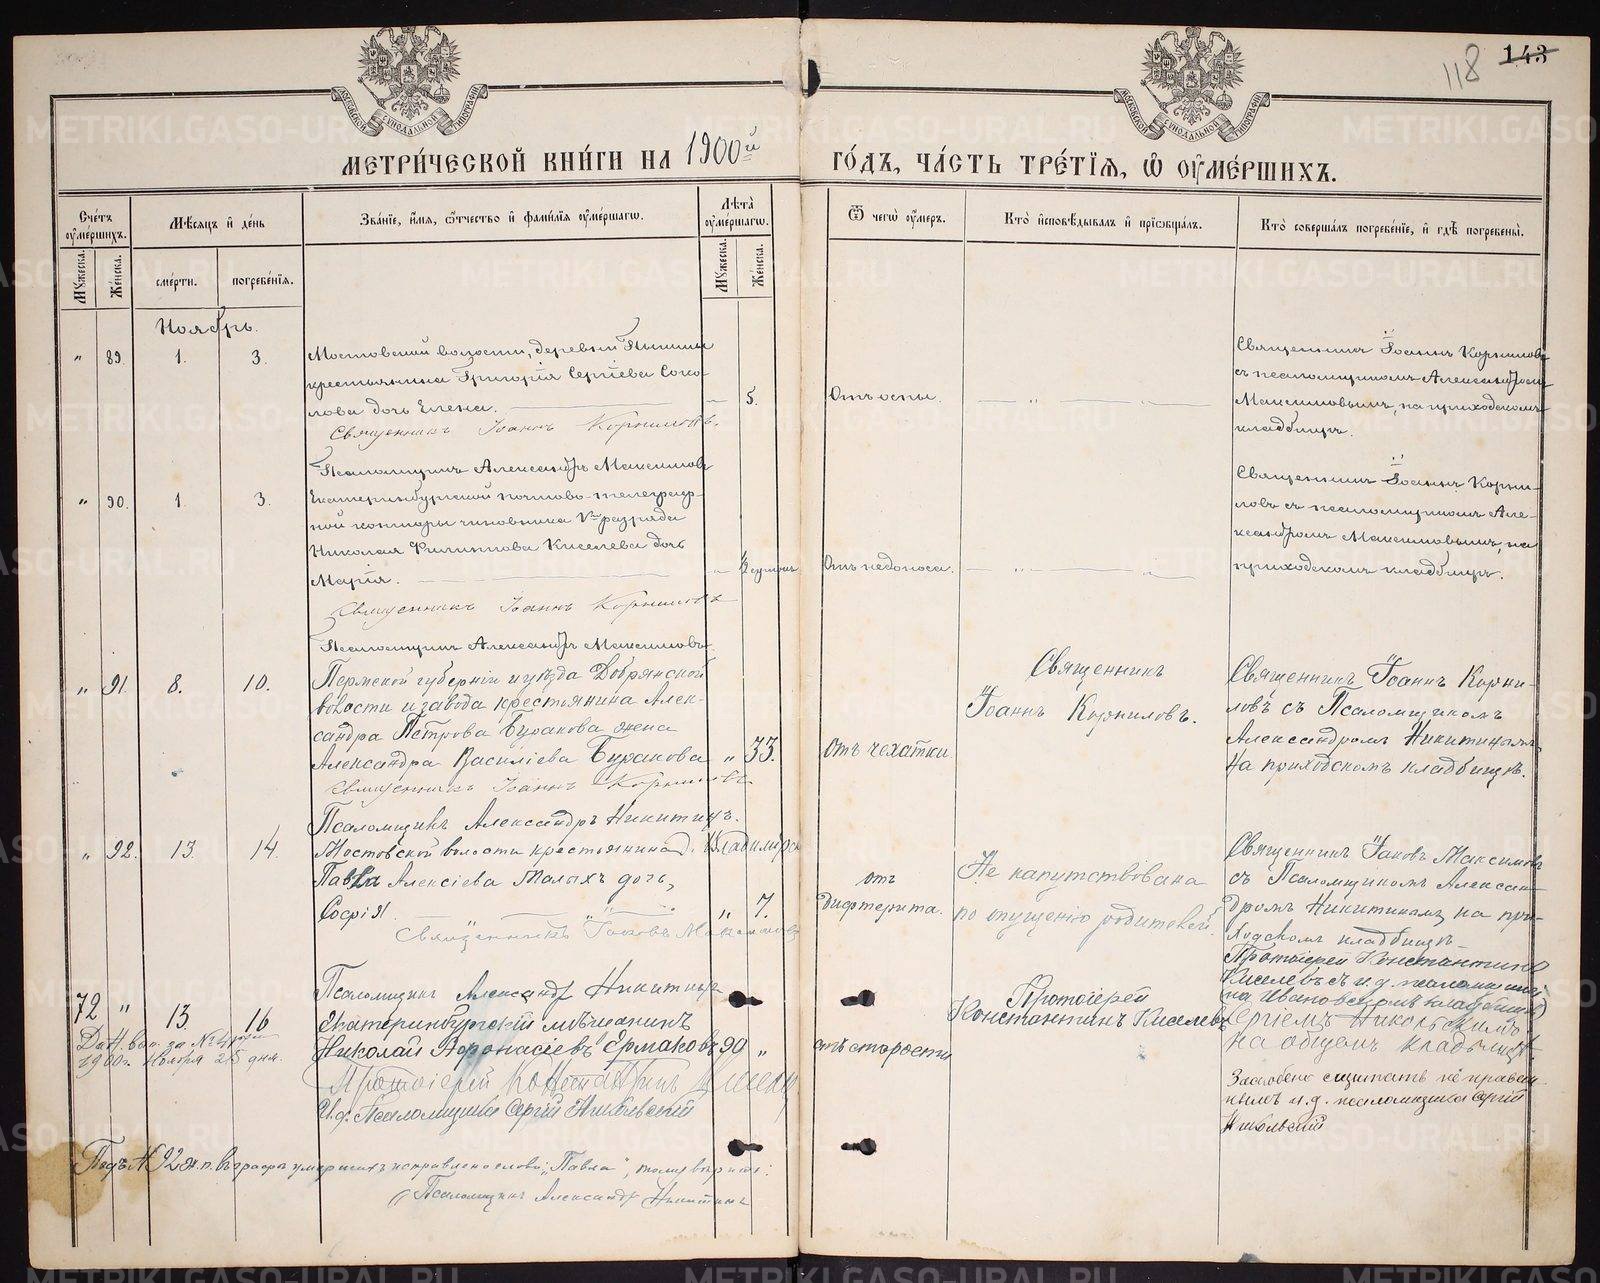 118 143
МОСКОВСКОЙ СѴНОДАЛЬНОЙ ТИПОГРАФІИ
МОСКОВСКОЙ СѴНОДАЛЬНОЙ ТИПОГРАФІИ
МЕТРИ́ЧЕСКОЙ КНИ́ГИ НА 1900й ГО́ДЪ, ЧА́СТЬ ТРЕ́ТІѦ, Ѡ҆ ОУ҆МЕ́РШИХЪ.
Сче́тъ оу҆ме́ршихъ.
Мꙋ́жеска.
Же́нска.
Мѣ́сяцъ и҆ де́нь
сме́рти.
погребе́нїѧ.
Зва́нїе, и҆́мѧ, ѻ҆́тчество и҆ фами́лїѧ оу҆ме́ршагѡ.
Лѣ́та оу҆ме́ршагѡ.
Мꙋ́жеска.
Же́нска.
Ѿ чегѡ̀ оу҆́меръ.
Кто̀ и҆сповѣ́дывалъ и҆ прїѡбща́лъ.
Кто̀ соверша́лъ погребе́нїе, и҆ гдѣ̀ погребены̀.
Ноябрь.
" 89. 1. 3.
Мостовской волости, деревни Пышмы
крестьянина Григорія Сергіева Соко-
лова дочь Елена. — 5.
Священникъ Іоаннъ Корниловъ.
Псаломщикъ Александръ Максимовъ
Отъ оспы.
Священникъ Іоаннъ Корниловъ
съ псаломщикомъ Александромъ
Максимовымъ, на приходскомъ
кладбищѣ.
" 90. 1. 3.
Екатеринбургской почтово-телеграф-
ной конторы чиновника V разряда
Николая Филиппова Киселева дочь
Марія.
Священникъ Іоаннъ Корниловъ
Псаломщикъ Александръ Максимовъ
Отъ недоноса.
Священникъ Іоаннъ Корни-
ловъ съ псаломщикомъ Але-
ксандромъ Максимовымъ, на
приходскомъ кладбищѣ.
" 91. 8. 10.
Пермской губерніи и уѣзда Добрянской
волости и завода крестьянина Алек-
сандра Петрова Буракова жена
Александра Василіева Буракова " 33.
Священникъ Іоаннъ Корниловъ
Псаломщикъ Александръ Никитинъ.
отъ чехатки
Священникъ
Іоаннъ Корниловъ.
Священникъ Іоаннъ Корни-
ловъ съ Псаломщикомъ
Александромъ Никитинымъ
на приходскомъ кладбищѣ.
" 92. 13. 14.
Мостовской волости крестьянина
Павла Алексіева Малыхъ дочь,
Софія. " 7.
Священникъ Іаковъ Максимовъ
Псаломщикъ Александръ Никитинъ
отъ
дифтерита.
Не напутствована
по опущенію родителей.
Священникъ Іаковъ Максимовъ
съ Псаломщикомъ Алексан-
дромъ Никитинымъ на при-
ходскомъ кладбищѣ
72 " 13. 16
Екатеринбургскій мѣщанинъ
Николай Афонасіевъ Ермаковъ 90 "
Протоіерей Константинъ Киселевъ
И.д. Псаломщика Сергій Никольскій
отъ старости
Протоіерей
Константинъ Киселевъ
Протоіерей Константинъ
Киселевъ съ и.д. псаломщика
Сергіемъ Никольскимъ
на общемъ кладбищѣ.
1900г. Ноября 25 дня.
никольскій
Подъ № 92 ж.п. въ графѣ умершихъ исправлено слово: "Павла",
Псаломщикъ Александръ Никитинъ
METRIKI.GASO-URAL.RU